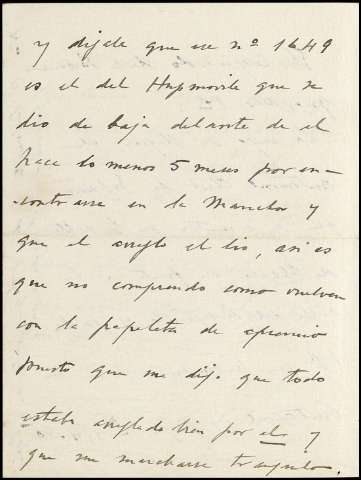 y dijele que ese nº 1649
es el del Hupmovile que se
dio de baja delante de el
hace lo menos 5 meses por en-
-contrarse en la Mancha y
que el arreglo el lio, asi es
que no comprendo como vuelven
con la papeleta de apremio
puesto que me dijo que todo
estaba arreglado bien por el y
que me marchase tranquilo.